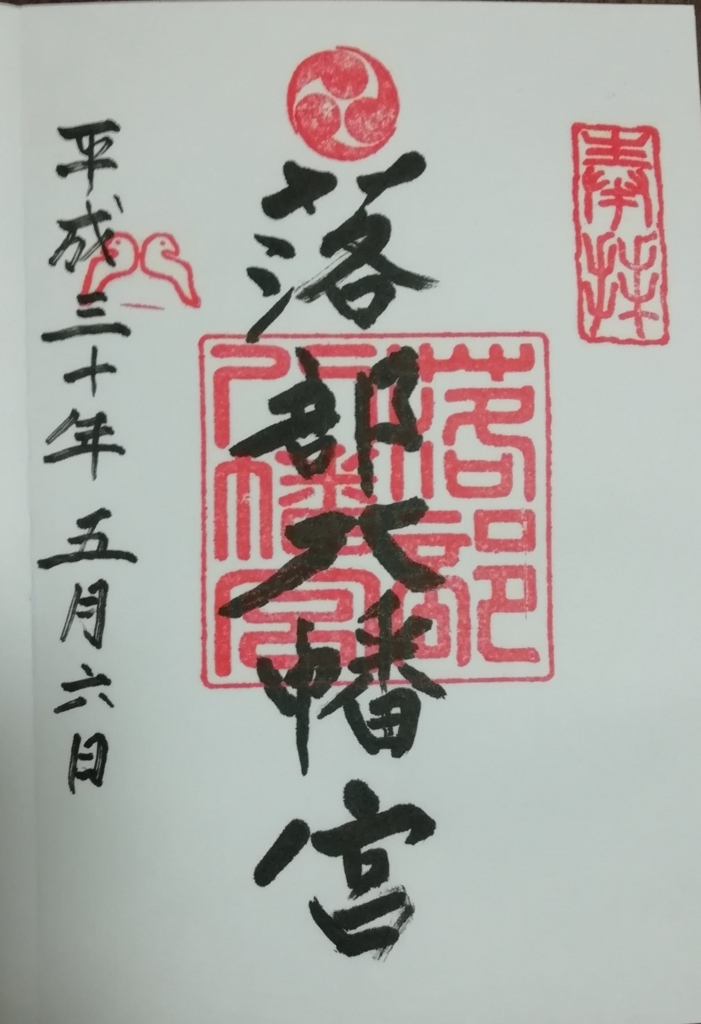 奉拝
落部八幡宮
落部八幡宮
平成三十年五月六日